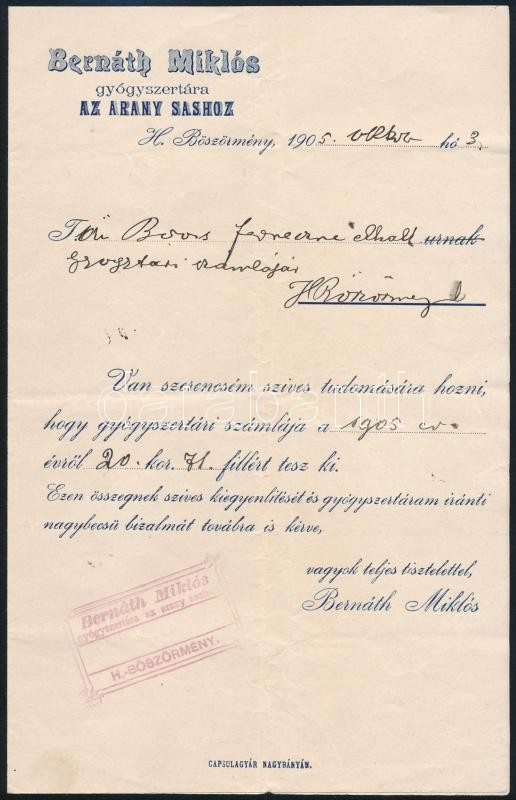 Bernáth Miklós
gyógyszertára
AZ ARANY SASHOZ
H. Böszörmény, 1905. oktob hó 3.
T. urnak
számlájár
H Böszörmény
Van szerencsém szives tudomására hozni,
hogy gyógyszertári számlája a 1905 év
évről 20 kor. 71 fillért tesz ki.
Ezen összegnek szives kiegyenlitését és gyógyszertáram iránti
nagybecsü bizalmát továbbra is kérve,
vagyok teljes tisztelettel,
Bernáth Miklós
Bernáth Miklós
gyógyszertára az arany sashoz
H.-BÖSZÖRMÉNY.
CAPSULAGYÁR NAGYBÁNYÁN.
darabanth